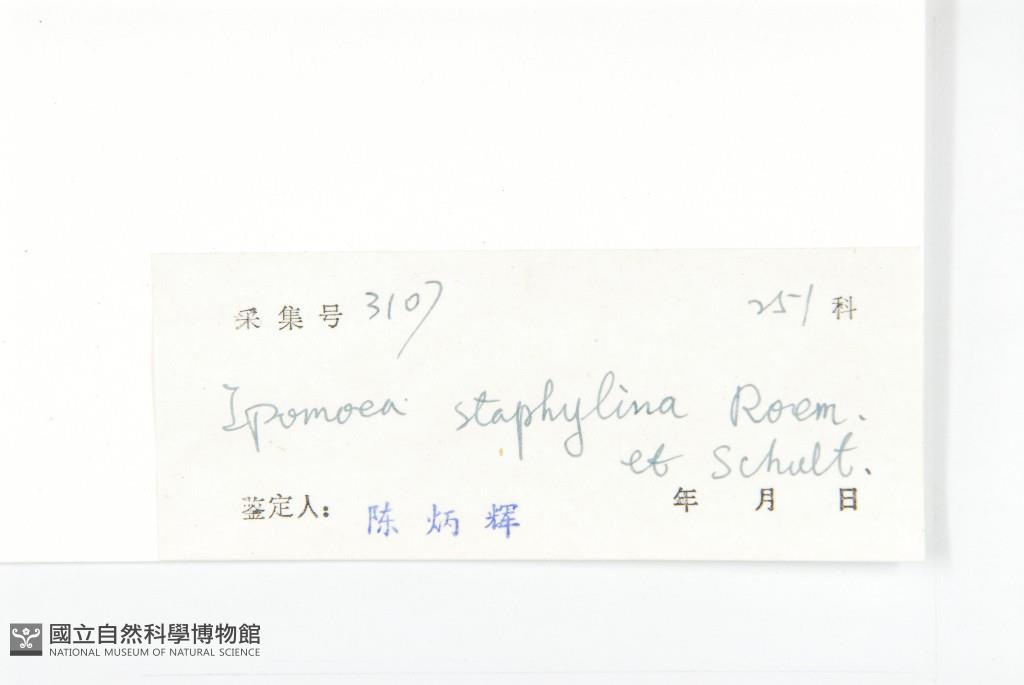 采集号 3107 251科
Ipomoea staphylina Roem.
et Schult.
鉴定人: 陈炳辉 年 月 日
國立自然科學博物館
NATIONAL MUSEUM OF NATURAL SCIENCE